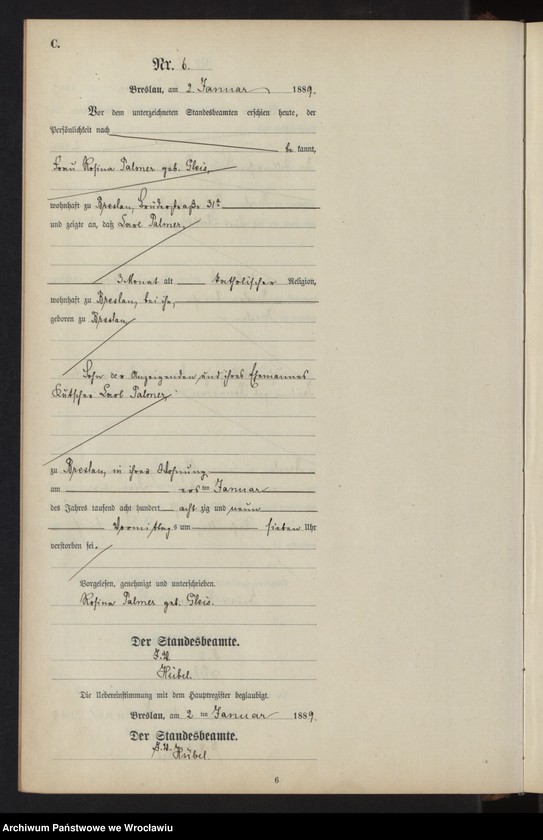 C.
Nr. 6.
Breslau, am 2. Januar 1889.
Vor dem unterzeichneten Standesbeamten erschien heute, der
Persönlichkeit nach
be kannt,
Frau Rosina Palmer geb. Gleis,
wohnhaft zu Breslau, Brüderstraße 31
und zeigte an, daß Carl Palmer,
3 Monat alt katholischer Religion,
wohnhaft zu Breslau, bei ihr,
geboren zu Breslau,
Sohn der Anzeigenden und ihres Ehemannes
Kutscher Carl Palmer
zu Breslau, in ihrer Wohnung
am ers ten Januar
des Jahres tausend acht hundert acht zig und neun
Vormittag s um sieben Uhr
verstorben sei.
Vorgelesen, genehmigt und unterschrieben.
Rosina Palmer geb. Gleis.
Der Standesbeamte.
J. V.
Hübel.
Die Uebereinstimmung mit dem Hauptregister beglaubigt.
Breslau, am 2 ten Januar 1889.
Der Standesbeamte.
J. V. Hübel.
6
Archiwum Państwowe we Wrocławiu